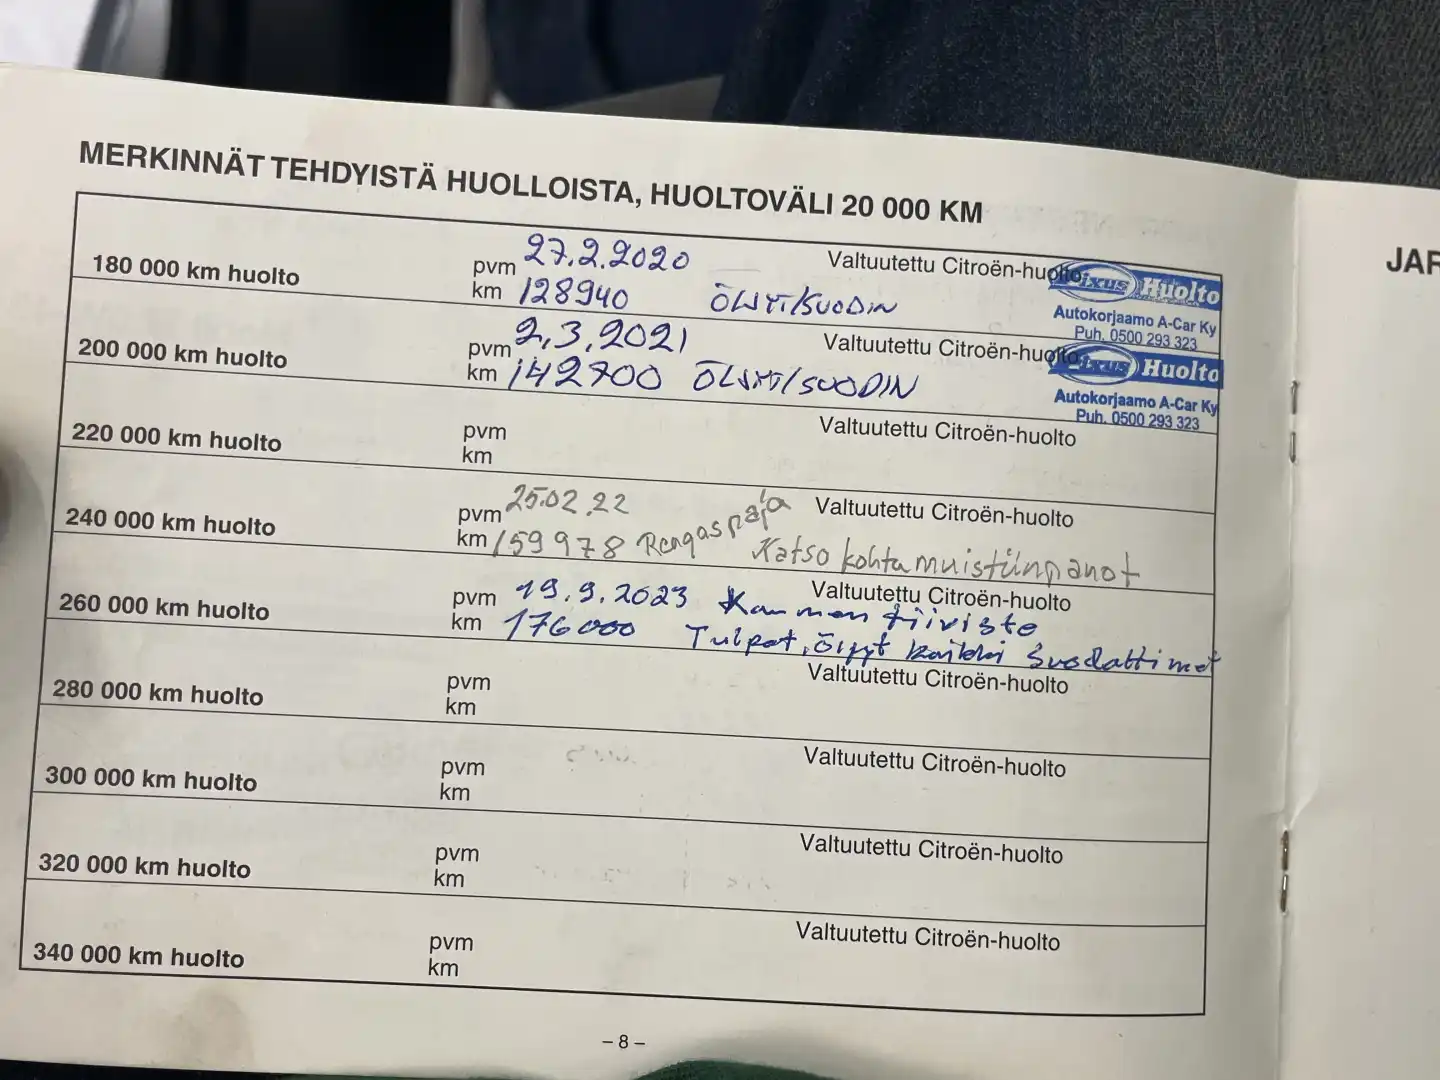 MERKINNÄT TEHDYISTÄ HUOLLOISTA, HUOLTOVÄLI 20 000 KM
180 000 km huolto
pvm 27.2.2020
km 128940 ÖLJYT/SUODIN
Valtuutettu Citroën-huolto
Fixus Huolto
Autokorjaamo A-Car Ky
Puh. 0500 293 323
200 000 km huolto
pvm 2,3,2021
km 142700 ÖLJYT/SUODIN
Valtuutettu Citroën-huolto
Fixus Huolto
Autokorjaamo A-Car Ky
Puh. 0500 293 323
220 000 km huolto
pvm
km
Valtuutettu Citroën-huolto
240 000 km huolto
pvm 25.02.22
km 159978 Rengaspaja
Valtuutettu Citroën-huolto
Katso kohta muistiinpanot
260 000 km huolto
pvm 19.9.2023 Kannen tiiviste
km 176000 Tulpat, öljyt kaikki suodattimet
Valtuutettu Citroën-huolto
280 000 km huolto
pvm
km
Valtuutettu Citroën-huolto
300 000 km huolto
pvm
km
Valtuutettu Citroën-huolto
320 000 km huolto
pvm
km
Valtuutettu Citroën-huolto
340 000 km huolto
pvm
km
Valtuutettu Citroën-huolto
– 8 –
JAR